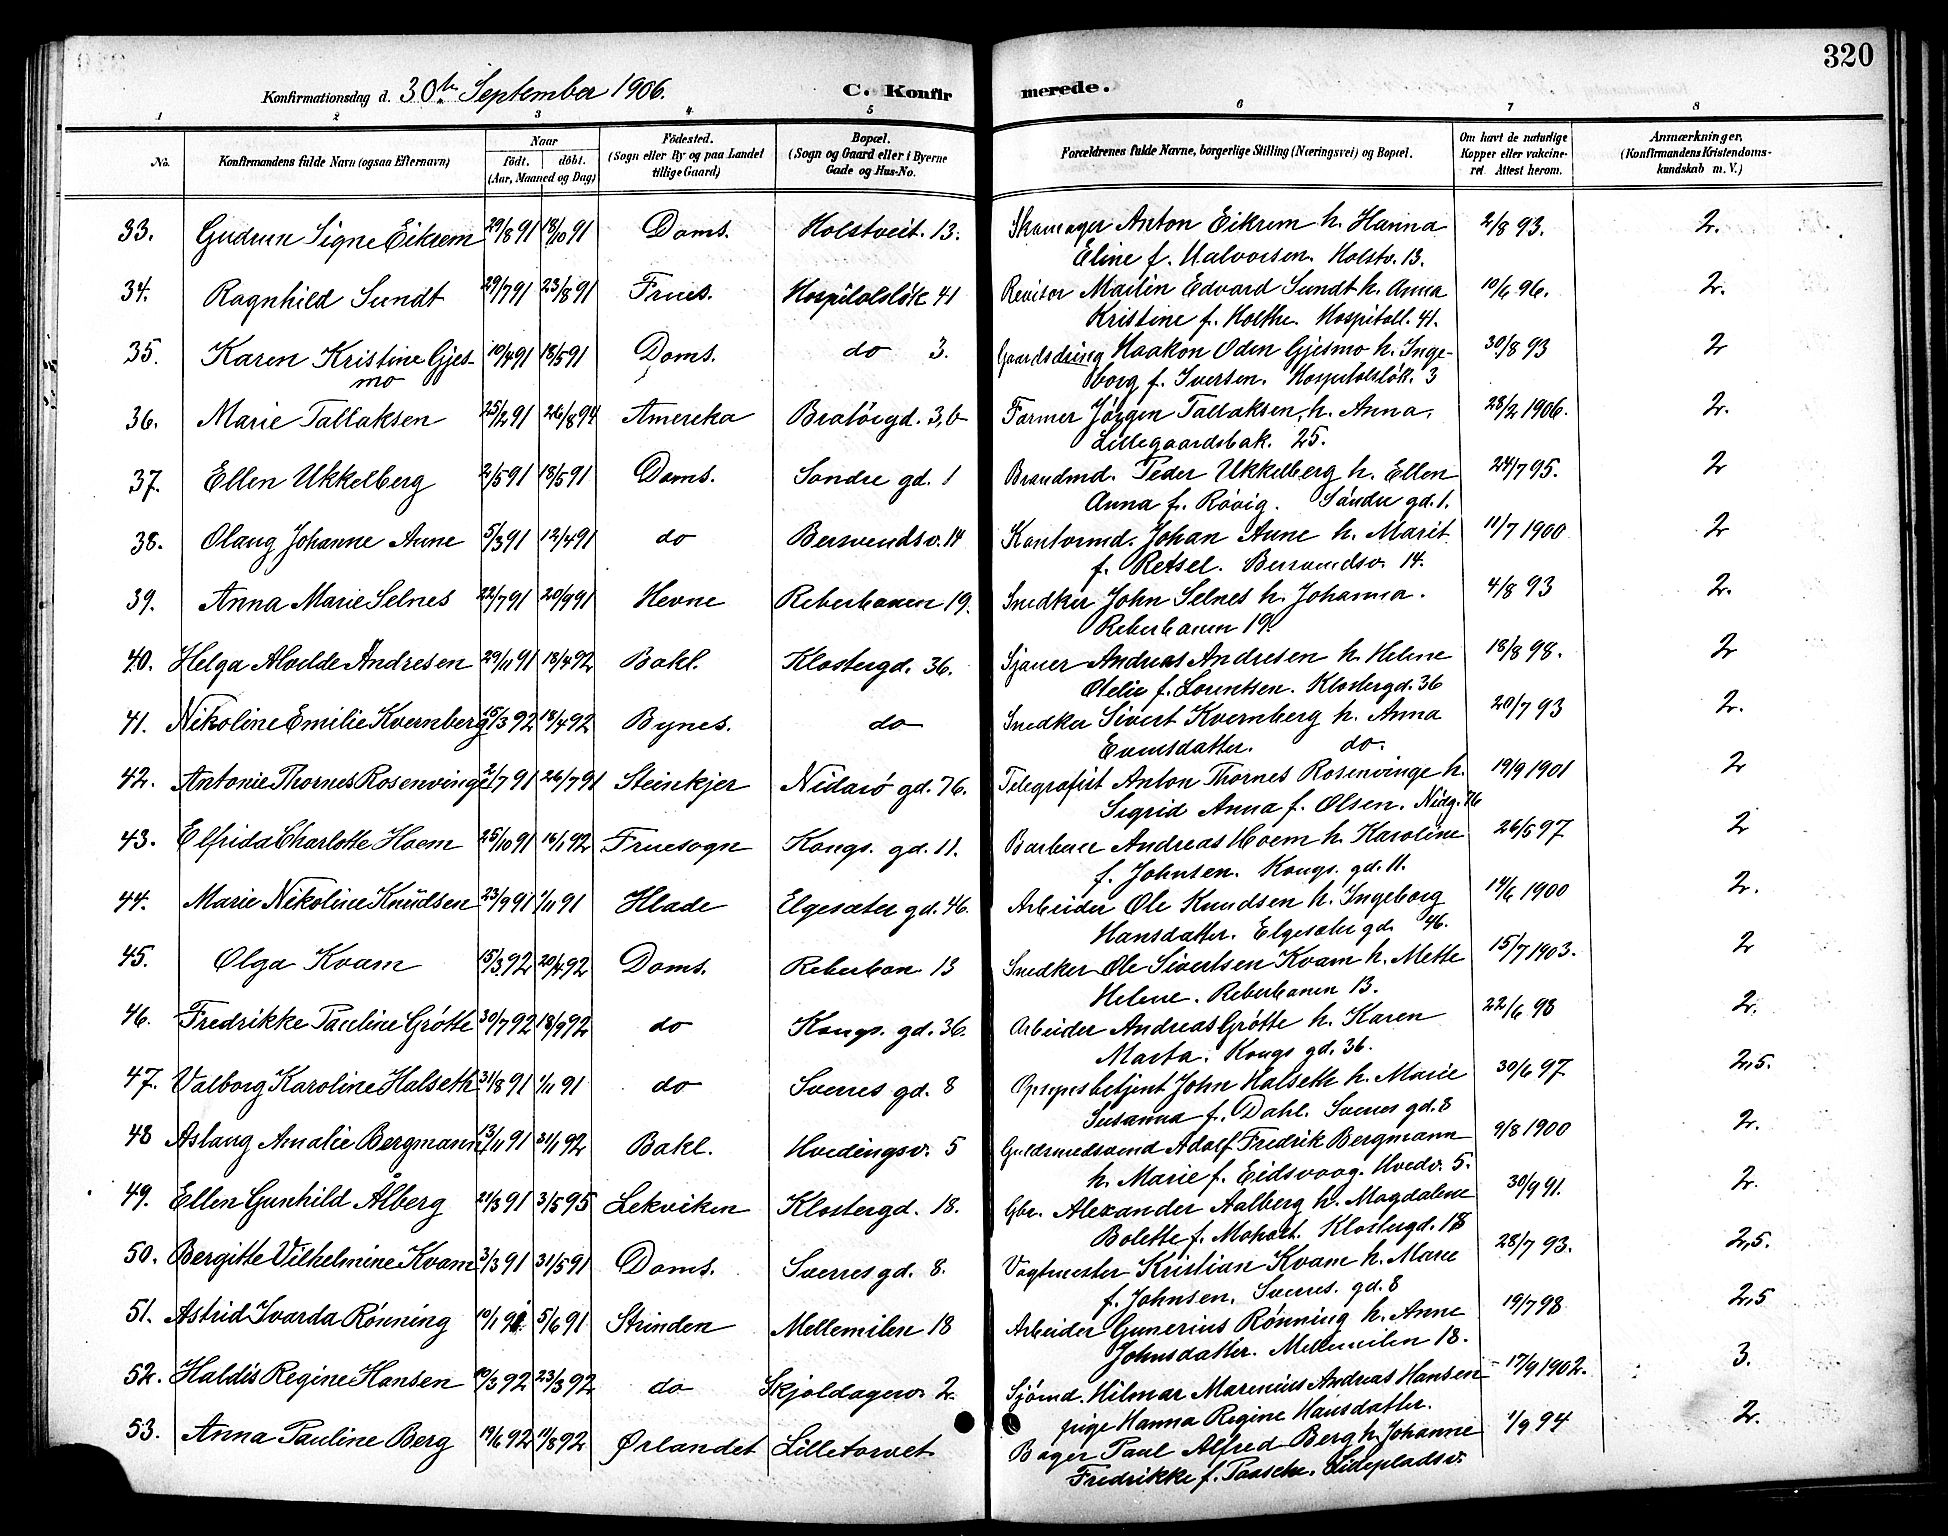 320
Konfirmationsdag d. 30te September 1906.
C. Konfirmerede.
1 2 3 4 5 6 7 8
No.
Konfirmandens fulde Navn (ogsaa Efternavn)
Naar
födt. döbt.
(Aar, Maaned og Dag)
Födested.
(Sogn eller By og paa Landet
tillige Gaard)
Bopæl.
(Sogn og Gaard eller i Byerne
Gade og Hus-No.
Forældrenes fulde Navne, borgerlige Stilling (Næringsvei) og Bopæl.
Om havt de naturlige
Kopper eller vakcine-
ret. Attest herom.
Anmærkninger,
(Konfirmandens Kristendoms-
kundskab m. V.)
33. Gudrun Signe Eikrem 29/8 91 18/10 91 Doms. Holstveit. 13. Skomager Anton Eikrem h. Hanna 2/8 93. 2.
Eline f. Halvorsen. Holstv. 13.
34. Ragnhild Sundt 29/7 91 23/8 91 Frues. Hospitalsløk 41 Revisor Martin Edvard Sundt h. Anna 10/6 96. 2.
Kristine f. Holthe. Hospitall. 41.
35. Karen Kristine Gjes- 10/4 91 18/5 91 Doms. do 3. Gaardsdreng Haakon Oden Gjesmo h. Inge- 30/8 93 2
mo borg f. Iversen. Hospitalsløk. 3
36. Marie Tallaksen 25/2 91 26/8 94 Amerika Bratörgd. 3,b Farmer Jörgen Tallaksen, h. Anna, 28/2 1906. 2.
Lillegaardsbak. 25.
37. Ellen Ukkelberg 2/5 91 18/5 91 Doms. Sondre gd. 1 Brandmd. Peder Ukkelberg h. Ellen 24/7 95. 2
Anna f. Rövig. Söndre gd. 1.
38. Olaug Johanne Aune 5/3 91 12/4 91 do Bersvendsv. 14 Kontormd. Johan Aune h. Marit 11/7 1900 2
f. Retsel. Bersvendsv. 14.
39. Anna Marie Selnes 22/7 91 20/9 91 Hevne Reberbanen 19. Snedker John Selnes h. Johanna. 4/8 93 2.
Reberbanen 19.
40. Helga Alvilde Andresen 29/11 91 18/4 92 Bakl. Klostergd. 36. Sjauer Andreas Andresen h. Helene 18/8 98. 2
Otelie f. Lorentsen. Klostergd. 36
41. Nikoline Emilie Kvernberg 15/3 92 18/4 92 Bynes. do Snedker Sivert Kvernberg h. Anna 20/7 93 2.
Evensdatter. do.
42. Antonie Thornes Rosenvinge 2/7 91 26/7 91 Steinkjer Nidarö gd. 76. Telegrafist Anton Thornes Rosenvinge h. 19/9 1901 2
Sigrid Anna f. Olsen. Nidg. 76
43. Elfrida Charlotte Hoem 25/10 91 16/1 92 Fruesogn Kongs. gd. 11. Barberer Andreas Hoem h. Karoline 26/5 97 2
f. Johnsen. Kongs. gd. 11.
44. Marie Nikoline Knudsen 23/9 91 1/11 91 Hlade Elgesæter gd. 46. Arbeider Ole Knudsen h. Ingeborg 14/6 1900 2.
Hansdatter. Elgesæter gd. 46.
45. Olga Kvam 15/3 92 20/4 92 Doms. Reberban 13 Snedker Ole Sivertsen Kvam h. Mette 15/7 1903. 2
Helene. Reberbanen 13.
46. Fredrikke Pauline Grötte 30/7 92 18/9 92 do Kongs. gd. 36. Arbeider Andreas Grötte h. Karen 22/6 98 2.
Marta. Kongs gd. 36.
47. Valborg Karoline Halseth 31/8 91 1/11 91 do Sverres gd. 8 Opsynsbetjent John Halseth h. Marie 30/6 97 2,5.
Susanna f. Dahl. Sverres gd. 8
48 Aslaug Amalie Bergmann 13/11 91 31/1 92 Bakl. Hvedingsv. 5 Guldsmedsvend Adolf Fredrik Bergmann 9/8 1900 2.
h. Marie f. Eidsvaag. Hvedv. 5.
49. Ellen Gunhild Alberg 21/3 91 3/5 95 Lekviken Klostergd. 18. Gbr. Alexander Aalberg h. Magdalene 30/9 91. 2.
Bolette f. Moholt. Klostergd. 18
50. Bergitte Vilhelmine Kvam 3/3 91 31/5 91 Doms. Sverres gd. 8. Vagtmester Kristian Kvam h. Marie 28/7 93. 2,5.
f. Johnsen. Sverres. gd. 8
51. Astrid Ivarda Rönning 10/1 91. 5/6 91 Strinden Mellemilen 18 Arbeider Gunerius Rönning h. Anne 19/7 98 2,5
Johnsdatter. Mellemilen 18.
52. Haldis Regine Hansen 10/3 92 23/3 92 do Skjoldagerv. 2. Sjömd. Hilmar Marenius Andreas Hansen 17/9 1902. 3.
pige Hanna Regine Hansdatter.
53. Anna Pauline Berg 19/6 92 11/8 92 Ørlandet Lilletorvet Bager Paul Alfred Berg h. Johanne 1/9 94 2.
Fredrikke f. Paasche. Lidepladsv.